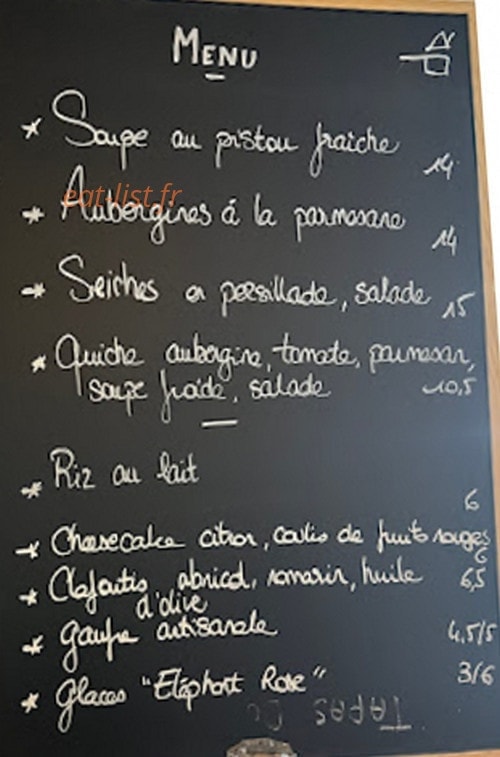 MENU
* Soupe au pistou fraîche
14
eat-list.fr
* Aubergines à la parmesane
14
* Seiches en persillade, salade 15
* Quiche aubergine, tomate, parmesan,
soupe froide, salade 10,5
* Riz au lait
6
* Cheesecake citron, coulis de fruits rouges
6
* Clafoutis abricot, romarin, huile 6,5
d'olive
* gaufre artisanale 4,5/5
* glaces "Eléphant Rose" 3/6
TAPAS